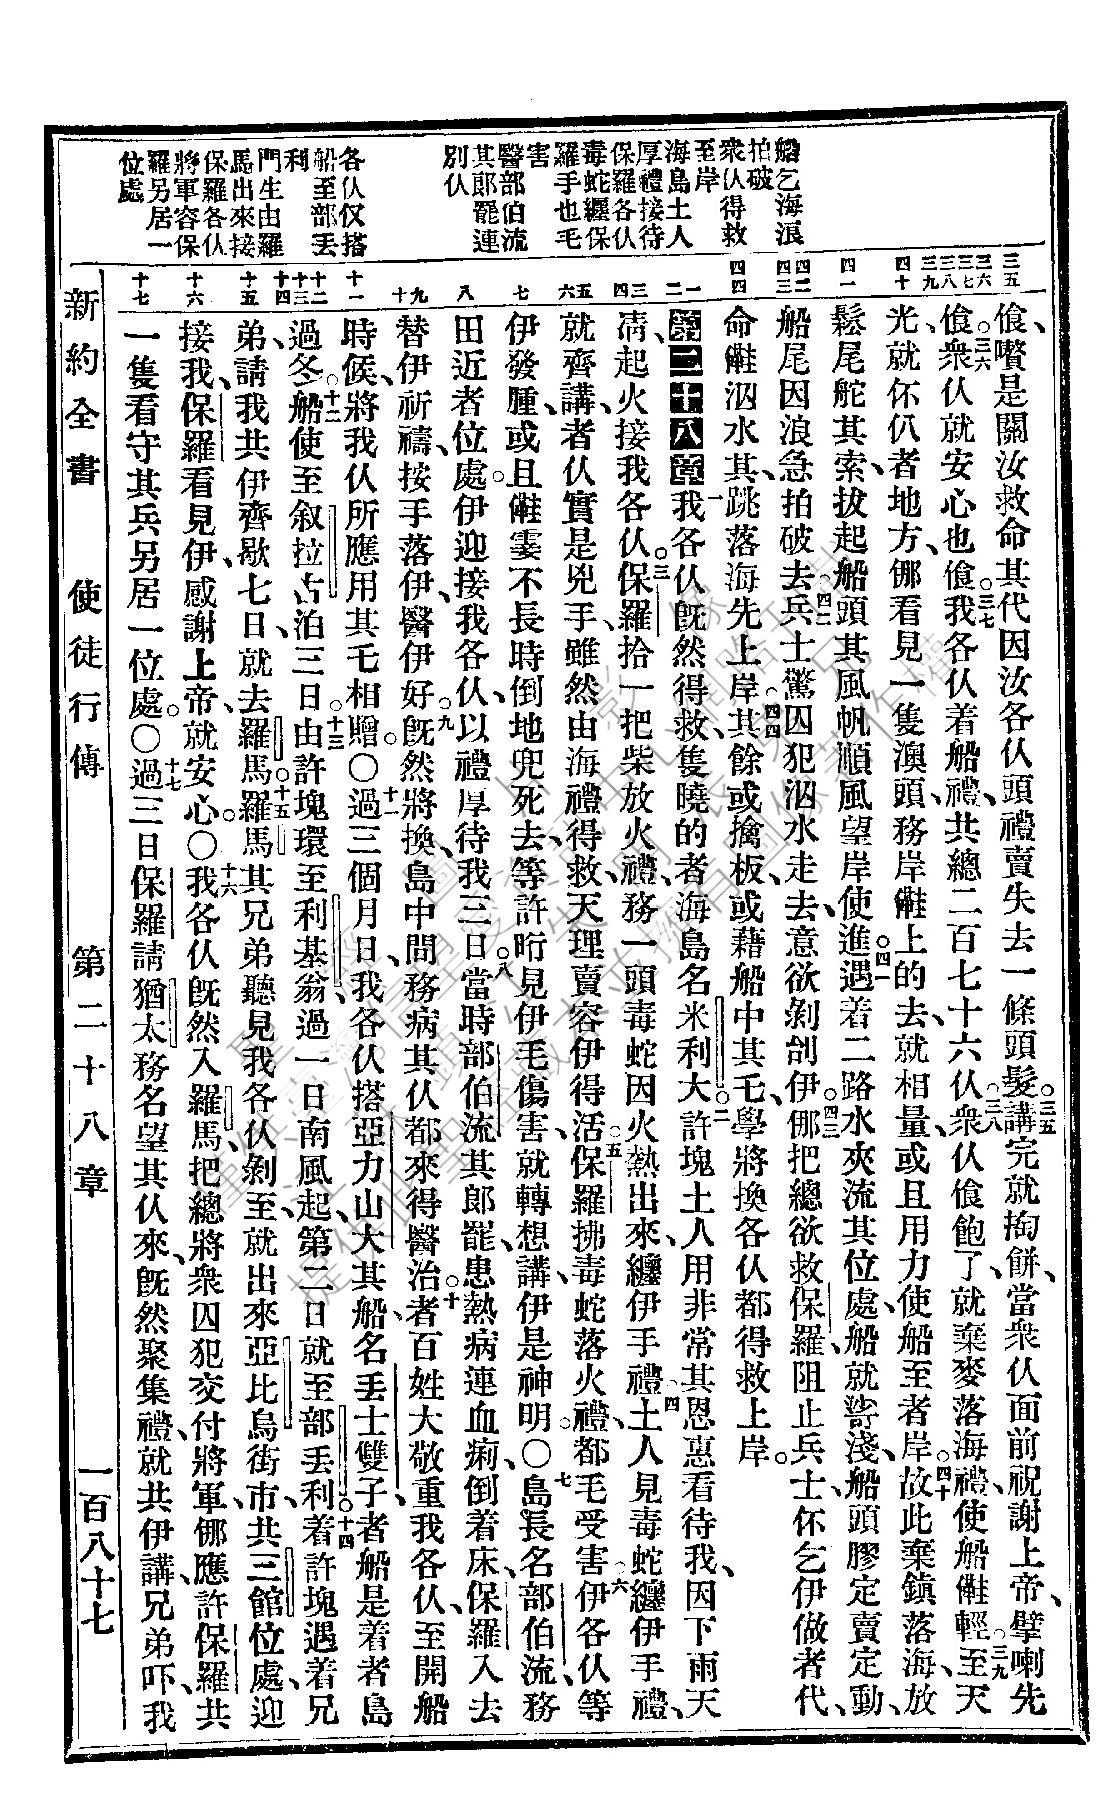 船乞海浪
拍破
衆㐲得救
至岸
海島土人
厚禮接待
保羅各㐲
毒蛇纒保
羅手也毛
害
醫部伯流
其郎罷連
別㐲
各㐲㐲搭
船至部丢
利
門生由羅
馬出來接
保羅各㐲
將軍容保
羅另居一
位處
三五
三六
三七
三八
三九
四十
四一
四二
四三
四四
一
二
三
四
五
六
七
八
九
十
十一
十二
十三
十四
十五
十六
十七
食、嚽是關汝救命其代因汝各㐲頭禮賣失去一條頭髮。三五講完就掏餅、當衆㐲面前祝謝上帝、擘喇先
食。三六衆㐲就安心也食。三七我各㐲着船禮、共總二百七十六㐲。三八衆㐲食飽了、就棄麥落海禮、使船㒰輕。三九至天
光、就伓仈者地方、㑚看見一隻澳頭、務岸㒰上的去、就相量、或且用力使船至者岸。四十故此棄錨落海、放
鬆尾舵其索、拔起船頭其風帆、順風望岸使進。四一遇着二路水夾流其位處、船就䠡淺、船頭膠定賣定動、
船尾因浪急拍破去。四二兵士驚囚犯泅水走去、意欲剝刣伊。四三㑚把總欲救保羅、阻止兵士、伓乞伊做者代、
命㒰泅水其、跳落海先上岸。四四其餘或擒板、或藉船中其乇、學將換各㐲都得救上岸。
第二十八章一我各㐲旣然得救、隻曉的者海島名米利大。二許塊土人用非常其恩惠看待我、因下雨天
凊、起火接我各㐲。三保羅拾一把柴放火禮、務一頭毒蛇因火熱出來、纒伊手禮。四土人見毒蛇纒伊手禮、
就齊講、者㐲實是兇手、雖然由海禮得救、天理賣容伊得活。五保羅拂毒蛇落火禮、都毛受害。六伊各㐲等
伊發腫、或且㒰霎不長時倒地兜死去、等許盺、見伊毛傷害、就轉想講、伊是神明。○七島長名部伯流、務
田近者位處。伊迎接我各㐲、以禮厚待我三日。八當時部伯流其郎罷、患熱病連血痢、倒着床、保羅入去
替伊祈禱、按手落伊、醫伊好。九旣然將換、島中間務病其㐲都來得醫治。十者百姓大敬重我各㐲、至開船
時候、將我㐲所應用其乇相贈。○十一過三個月日、我各㐲搭亞力山大其船、名丢士雙子、者船是着者島
過冬。十二船使至叙拉古、泊三日。十三由許塊環至利基翁、過一日南風起、第二日就至部丢利。十四着許塊遇着兄
弟、請我共伊齊歇七日、就去羅馬。十五羅馬其兄弟聽見我各㐲剝至、就出來亞比烏街市、共三館位處、迎
接我、保羅看見伊、感謝上帝、就安心。○十六我各㐲旣然入羅馬、把總將衆囚犯交付將軍、㑚應許保羅共
一隻看守其兵另居一位處。○十七過三日、保羅請猶太務名望其㐲來、旣然聚集禮、就共伊講、兄弟吓、我
新約全書 使徒行傳 第二十八章 一百八十七